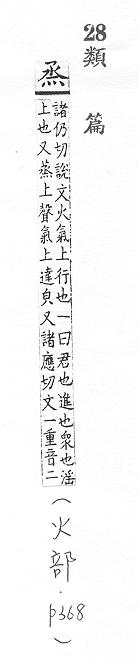 28類 篇
烝
諸仍切說文火氣上行也一曰君也進也衆也淫
上也又蒸上聲氣上達皃又諸應切文一重音二
(火部.p368)